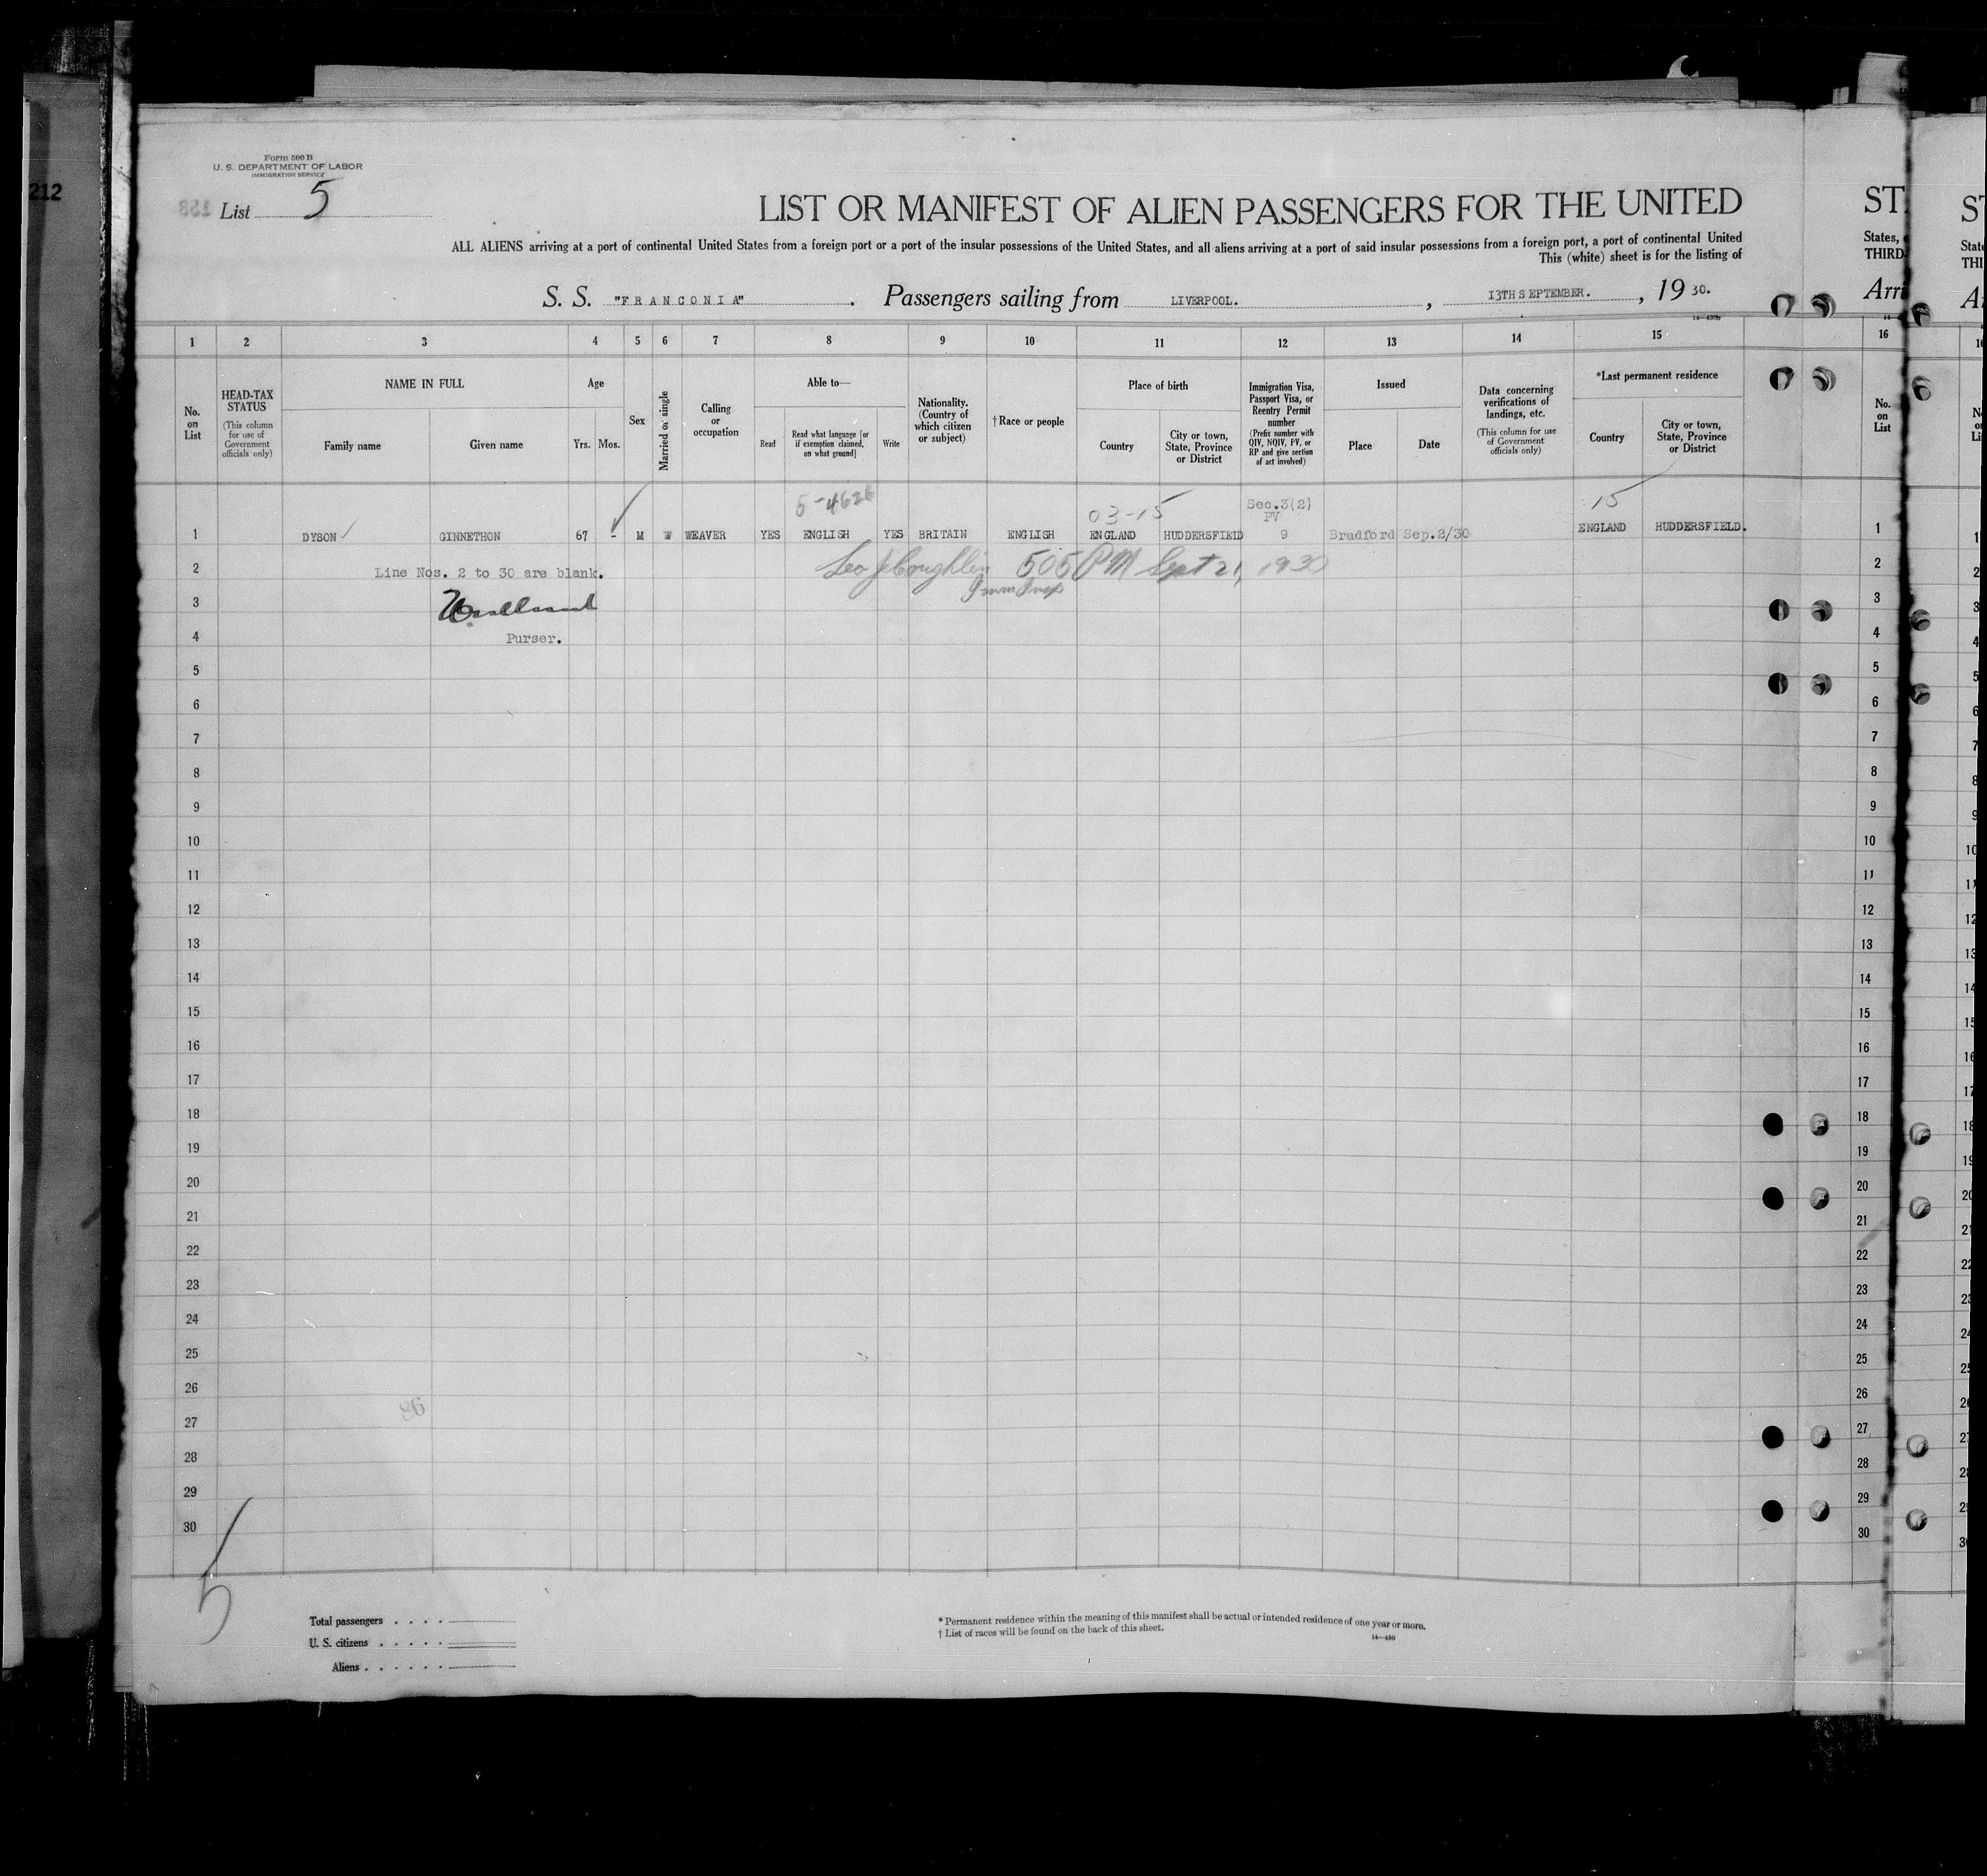 212
Form 500 B
U. S. DEPARTMENT OF LABOR
IMMIGRATION SERVICE
List 5
158
LIST OR MANIFEST OF ALIEN PASSENGERS FOR THE UNITED
ALL ALIENS arriving at a port of continental United States from a foreign port or a port of the insular possessions of the United States, and all aliens arriving at a port of said insular possessions from a foreign port, a port of continental United
This (white) sheet is for the listing of
S. S. "FRANCONIA". Passengers sailing from LIVERPOOL. , 13TH SEPTEMBER. , 19 30.
ST
States,
THIRD
Arri
1 2 3 4 5 6 7 8 9 10 11 12 13 14 15 16
No. on List
HEAD-TAX STATUS
(This column for use of Government officials only)
NAME IN FULL
Family name Given name
Age
Yrs. Mos.
Sex
Married or single
Calling or occupation
Able to—
Read
Read what language [or if exemption claimed, on what ground]
Write
Nationality. (Country of which citizen or subject)
†Race or people
Place of birth
Country
City or town, State, Province or District
Immigration Visa, Passport Visa, or Reentry Permit number
(Prefix number with QIV, NQIV, PV, or RP and give section of act involved)
Issued
Place Date
Data concerning verifications of landings, etc.
(This column for use of Government officials only)
*Last permanent residence
Country
City or town, State, Province or District
No. on List
5-4626 03-15 Sec.3(2) PV 15
1 DYSON GINNETHON 67 - M W WEAVER YES ENGLISH YES BRITAIN ENGLISH ENGLAND HUDDERSFIELD 9 Bradford Sep.2/30 ENGLAND HUDDERSFIELD. 1
2 Line Nos. 2 to 30 are blank. Leo J Coughlin 505 PM Sept 21, 1930 2
3 Imm Insp 3
4 Purser. 4
5 5
6 6
7 7
8 8
9 9
10 10
11 11
12 12
13 13
14 14
15 15
16 16
17 17
18 18
19 19
20 20
21 21
22 22
23 23
24 24
25 25
26 26
86
27 27
28 28
29 29
30 30
5
Total passengers . . . .
U. S. citizens . . . . .
Aliens . . . . . .
* Permanent residence within the meaning of this manifest shall be actual or intended residence of one year or more.
† List of races will be found on the back of this sheet.